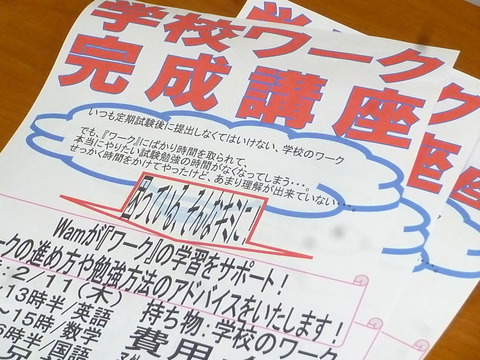 学校ワーク
完成講座
いつも定期試験後に提出しなくてはいけない、学校のワーク
でも、『ワーク』にばかり時間を取られて、
本当にやりたい試験勉強の時間がなくなってしまう・・・。
せっかく時間をかけてやったけど、あまり理解が出来ていない・・・
困っている、そんなキミに！
Wamが『ワーク』の学習をサポート！
ークの進め方や勉強方法のアドバイスをいたします！
：2／11（木）
13時半／英語
～15時／数学
時半／国語
持ち物：学校のワーク
費用